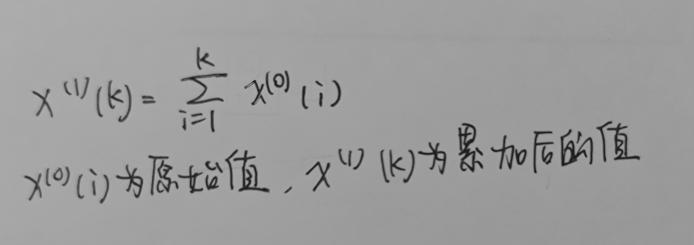 x⁽¹⁾(k) = ∑_{i=1}^{k} x⁽⁰⁾(i)
x⁽⁰⁾(i)为原始值，x⁽¹⁾(k)为累加后的值